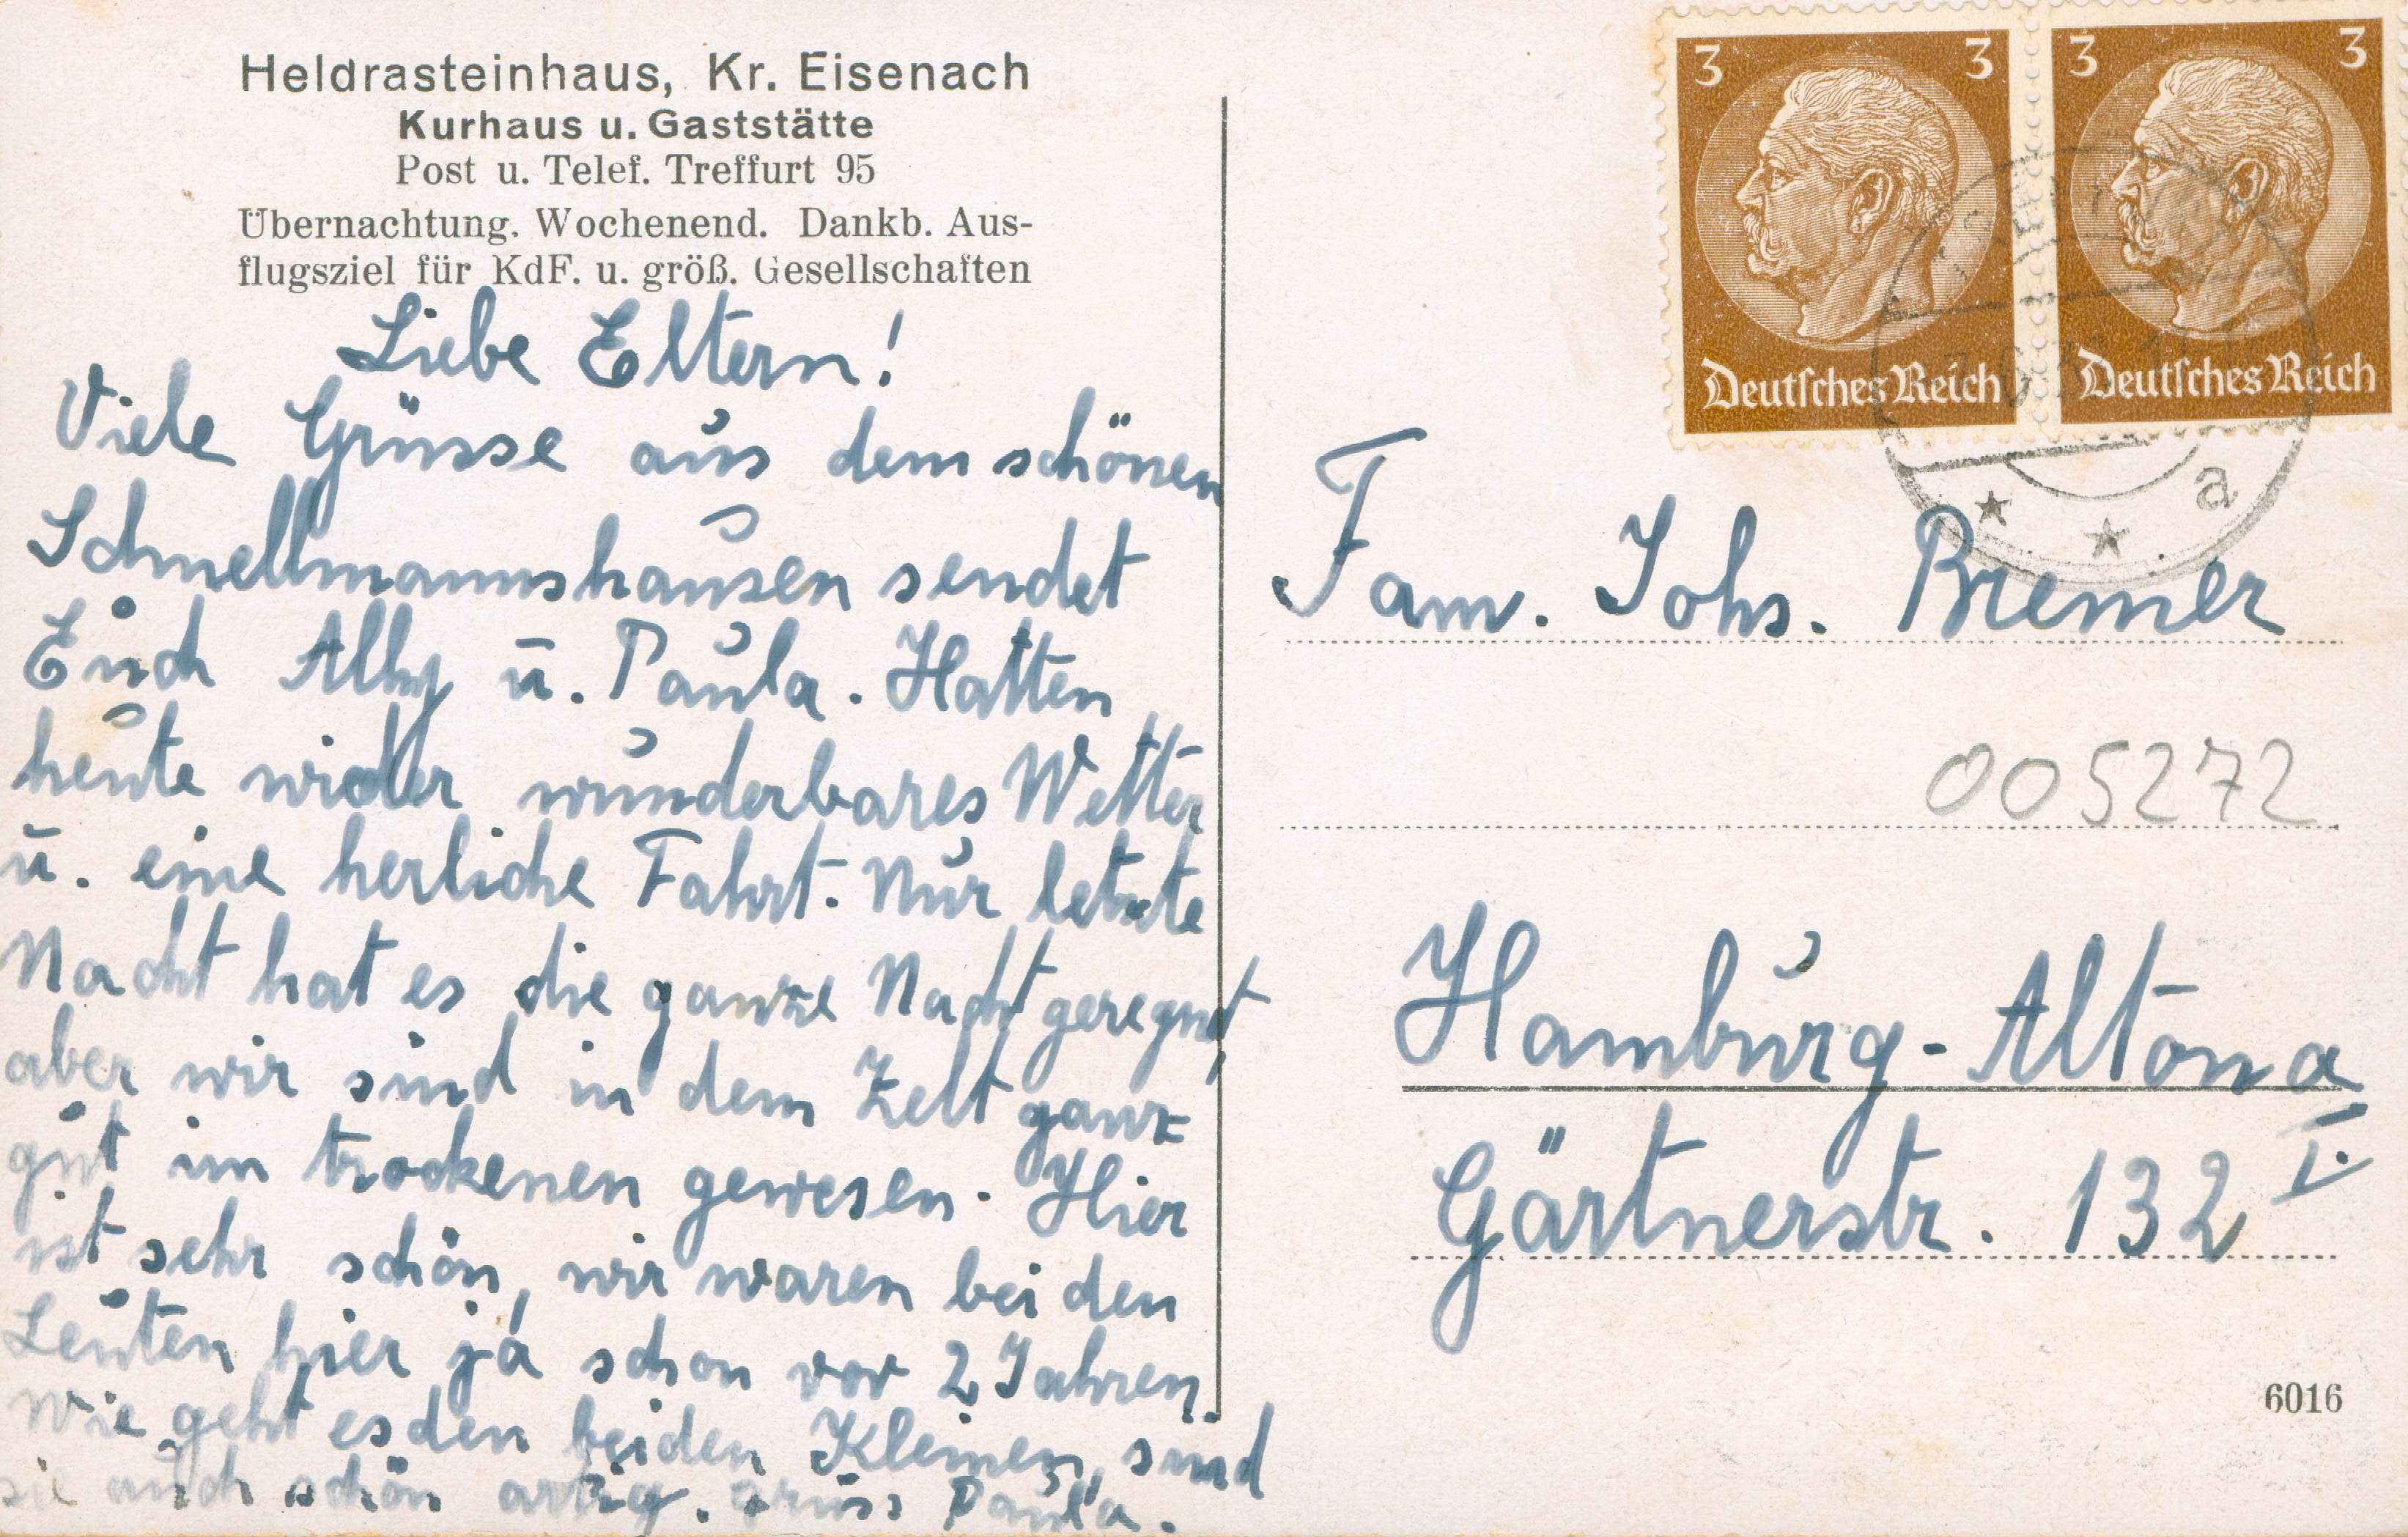 Heldrasteinhaus, Kr. Eisenach
Kurhaus u. Gaststätte
Post u. Telef. Treffurt 95
Übernachtung. Wochenend. Dankb. Aus-
flugsziel für KdF. u. größ. Gesellschaften
Liebe Eltern!
Viele Grüsse aus dem schönen
Schnellmannshausen sendet
Euch Ally u. Paula. Hatten
heute wider wunderbares Wetter
u. eine herliche Fahrt. Nur letzte
Nacht hat es die ganze Nacht geregnet,
aber wir sind in dem Zelt ganz
gut im trockenen gewesen. Hier
ist sehr schön, wir waren bei den
Leuten hier ja schon vor 2 Jahren.
Wie geht es den beiden Kleinen, sind
sie auch schön artig. Gruss Paula.
3 3
Deutsches Reich
3 3
Deutsches Reich
a
Fam. Johs. Bremer
005272
Hamburg-Altona
Gärtnerstr. 132 I.
6016